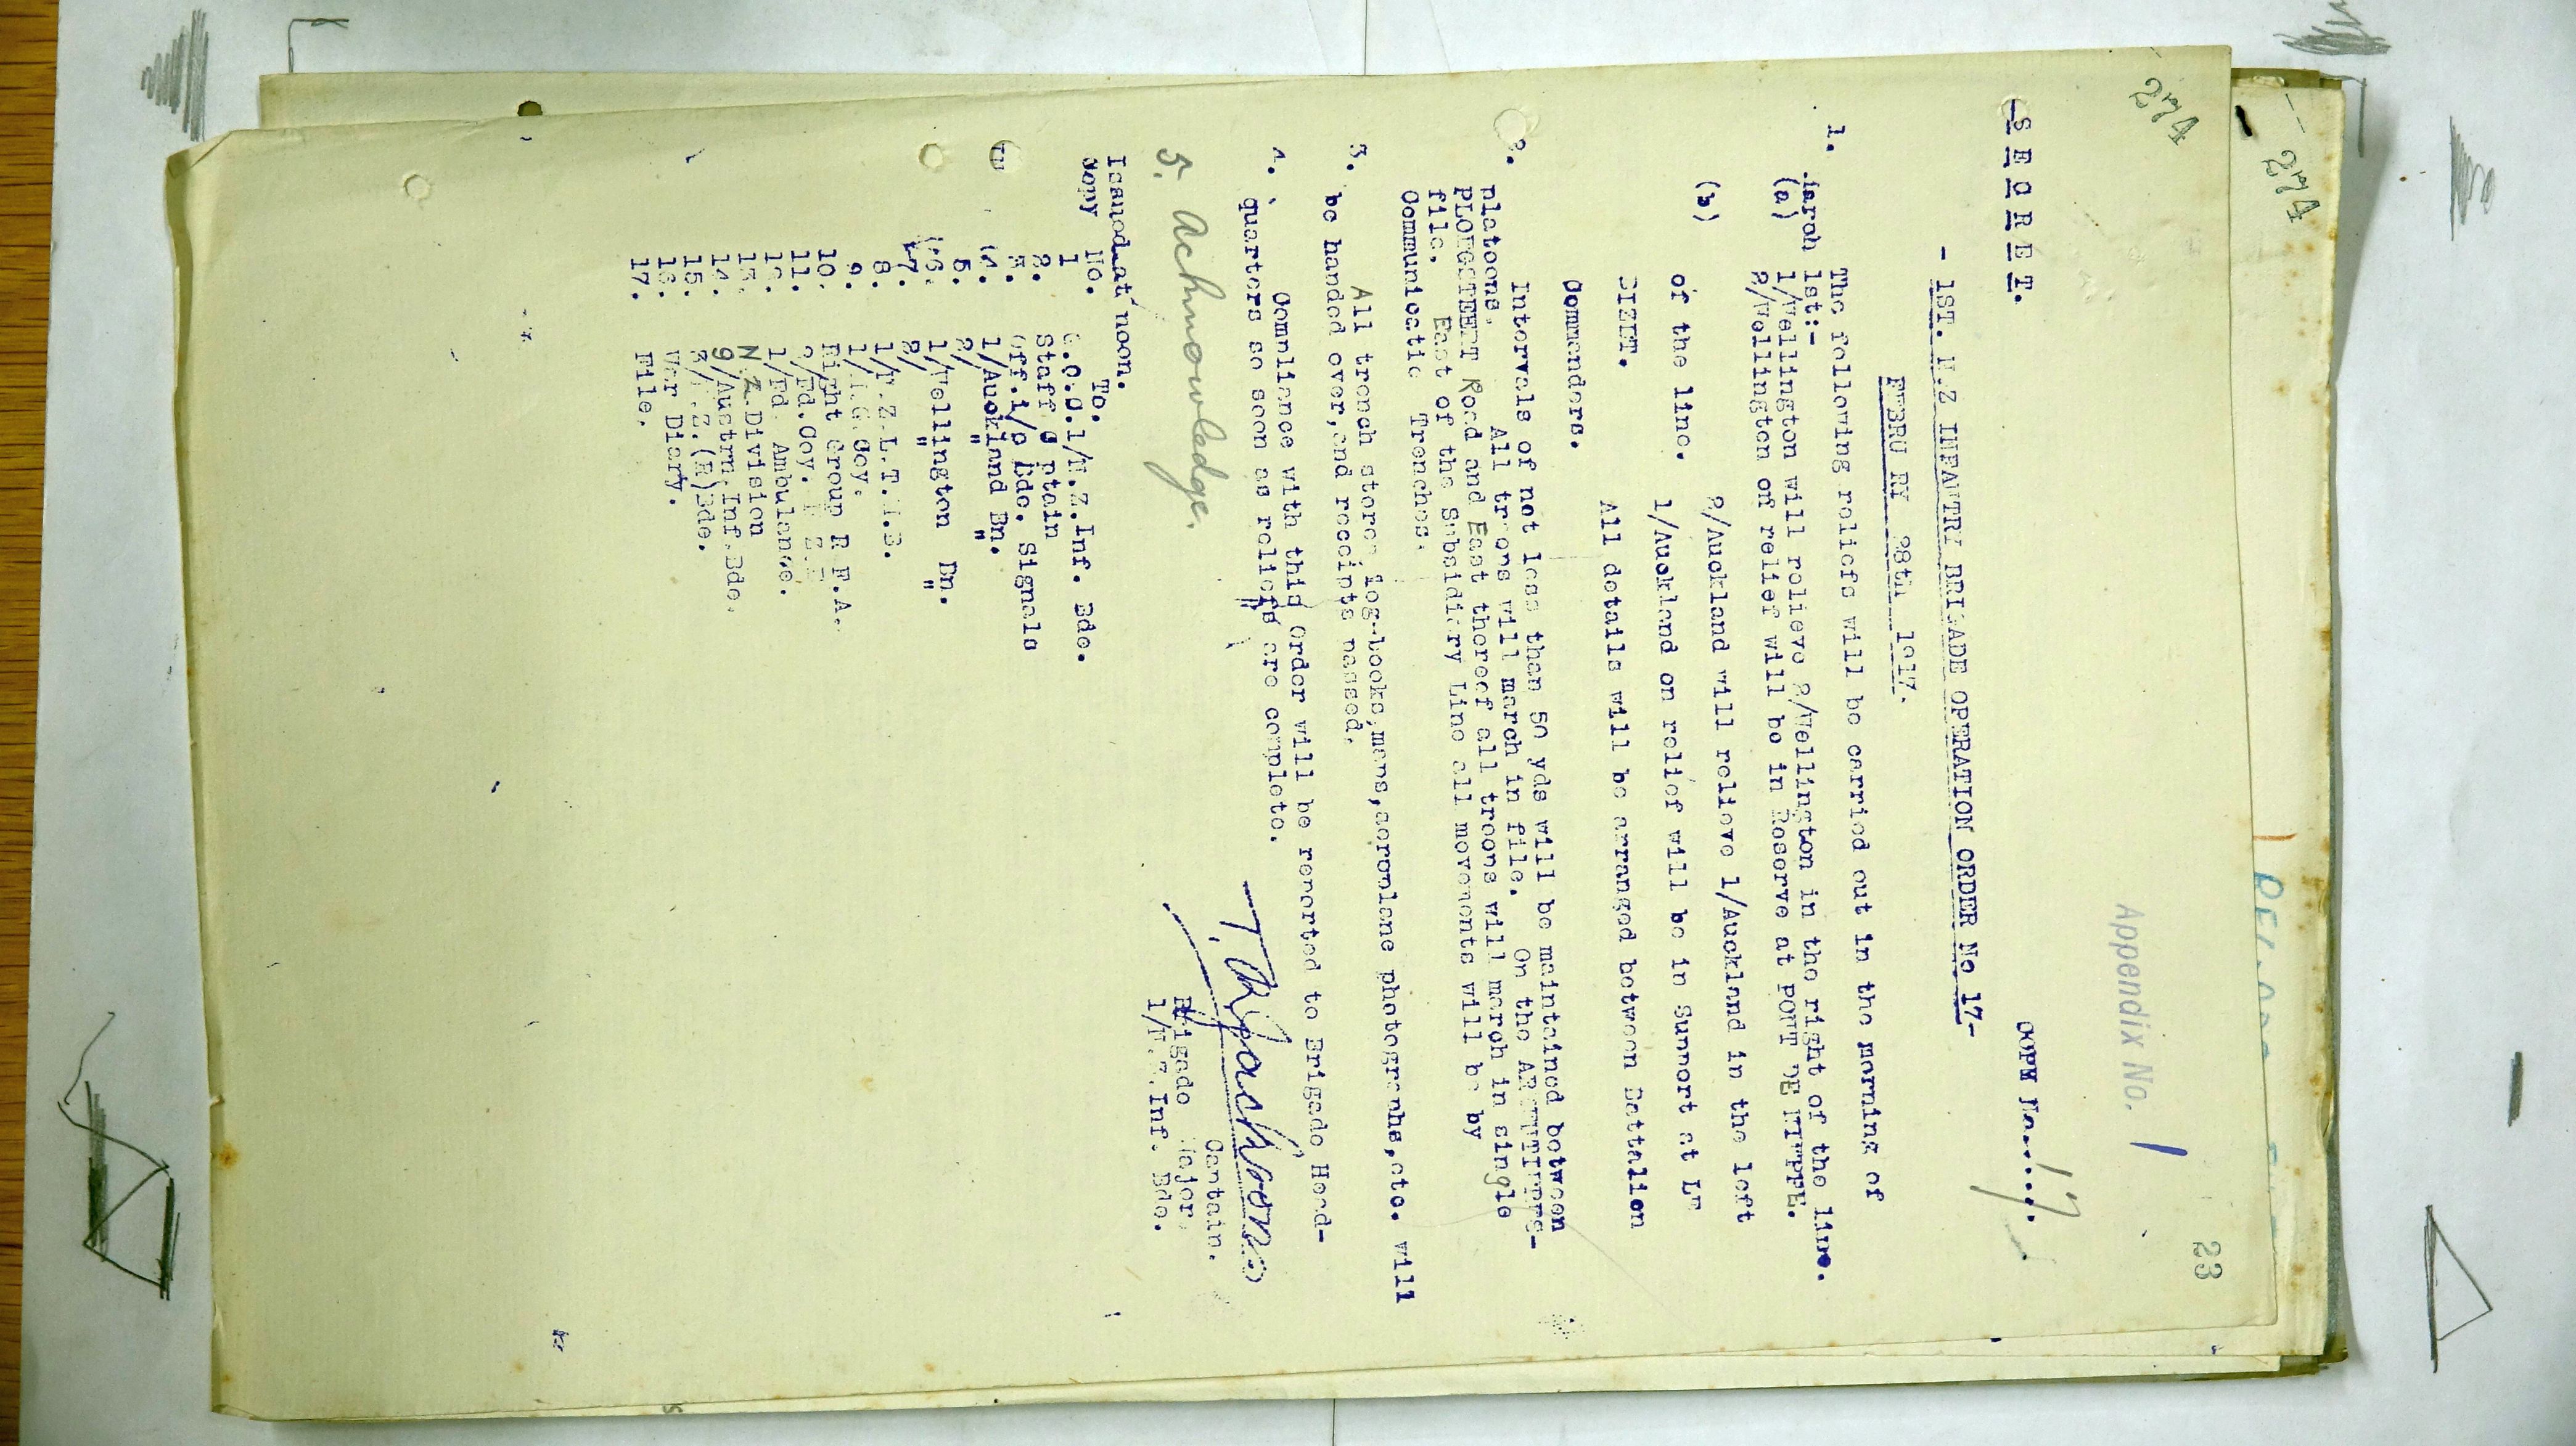 274
274
23
Appendix No. 1
SECRET.
COPY No..... 17.
- 1ST. N.Z INFANTRY BRIGADE OPERATION ORDER No 17-
FEBRU RY 28th 1917.
1. The following reliefs will be carried out in the morning of
March 1st:-
(a) 1/Wellington will relieve 2/Wellington in the right of the line.
2/Wellington on relief will be in Reserve at PONT DE NIEPPE.
(b) 2/Auckland will relieve 1/Auckland in the left
of the line.
1/Auckland on relief will be in Support at LE
BIZET.
All details will be arranged between Battalion
Commanders.
2. Intervals of not less than 50 yds will be maintained between
platoons. All troops will march in file. On the ARMENTIERES-
PLOEGSTEERT Road and East thereof all troops will march in single
file. East of the Subsidiary Line all movements will be by
Communicatio Trenches.
3. All trench stores log-books,maps,aeroplane photographs,etc. will
be handed over,and receipts passed.
4. Compliance with this Order will be reported to Brigade Head-
quarters so soon as reliefs are complete.
5. Acknowledge.
Captain.
Brigade Major,
1/N.Z.Inf. Bde.
Issued at noon.
Copy No. To.
1 G.O.C.1/N.Z.Inf. Bde.
2. Staff C ptain
3. Off.i/c Bde. Signals
4. 1/Auckland Bn.
5. 2/ " "
6. 1/Wellington Bn.
7. 2/ " "
8. 1/N.Z.L.T.M.B.
9. 1/M.G.Coy.
10. Right Group R.F.A.
11. 2/Fd.Coy. N.Z.E
12. 1/Fd. Ambulance.
13. N.Z.Division
14. 9/Austrn.Inf.Bde.
15. 3/N.Z.(R)Bde.
16. War Diary.
17. File.